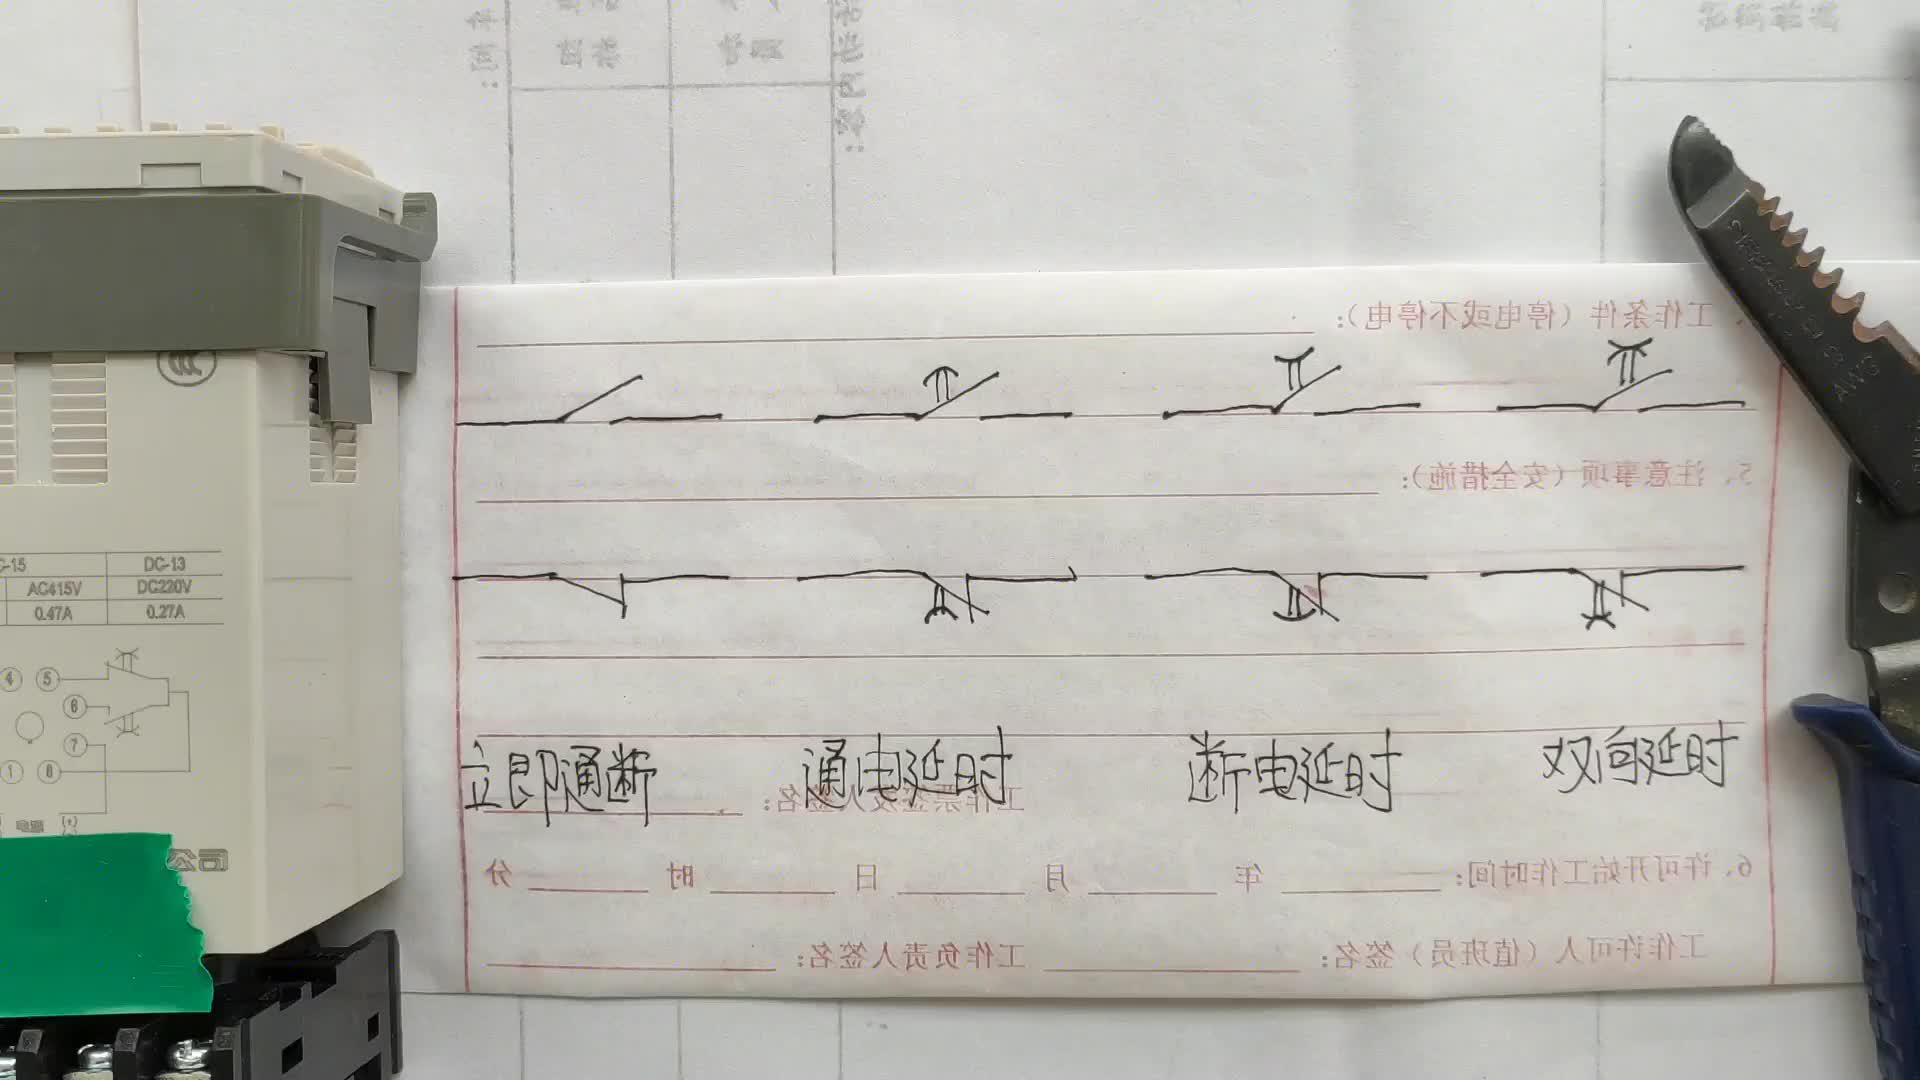 工作条件（停电或不停电）：
5、注意事项（安全措施）：
AWG
DC-13
AC415V DC220V
0.47A 0.27A
4 5
6
7
1 8
立即通断 通电延时 断电延时 双向延时
工作票签发人签名：
6、许可开始工作时间： 年 月 日 时 分
工作许可人（值班员）签名： 工作负责人签名：